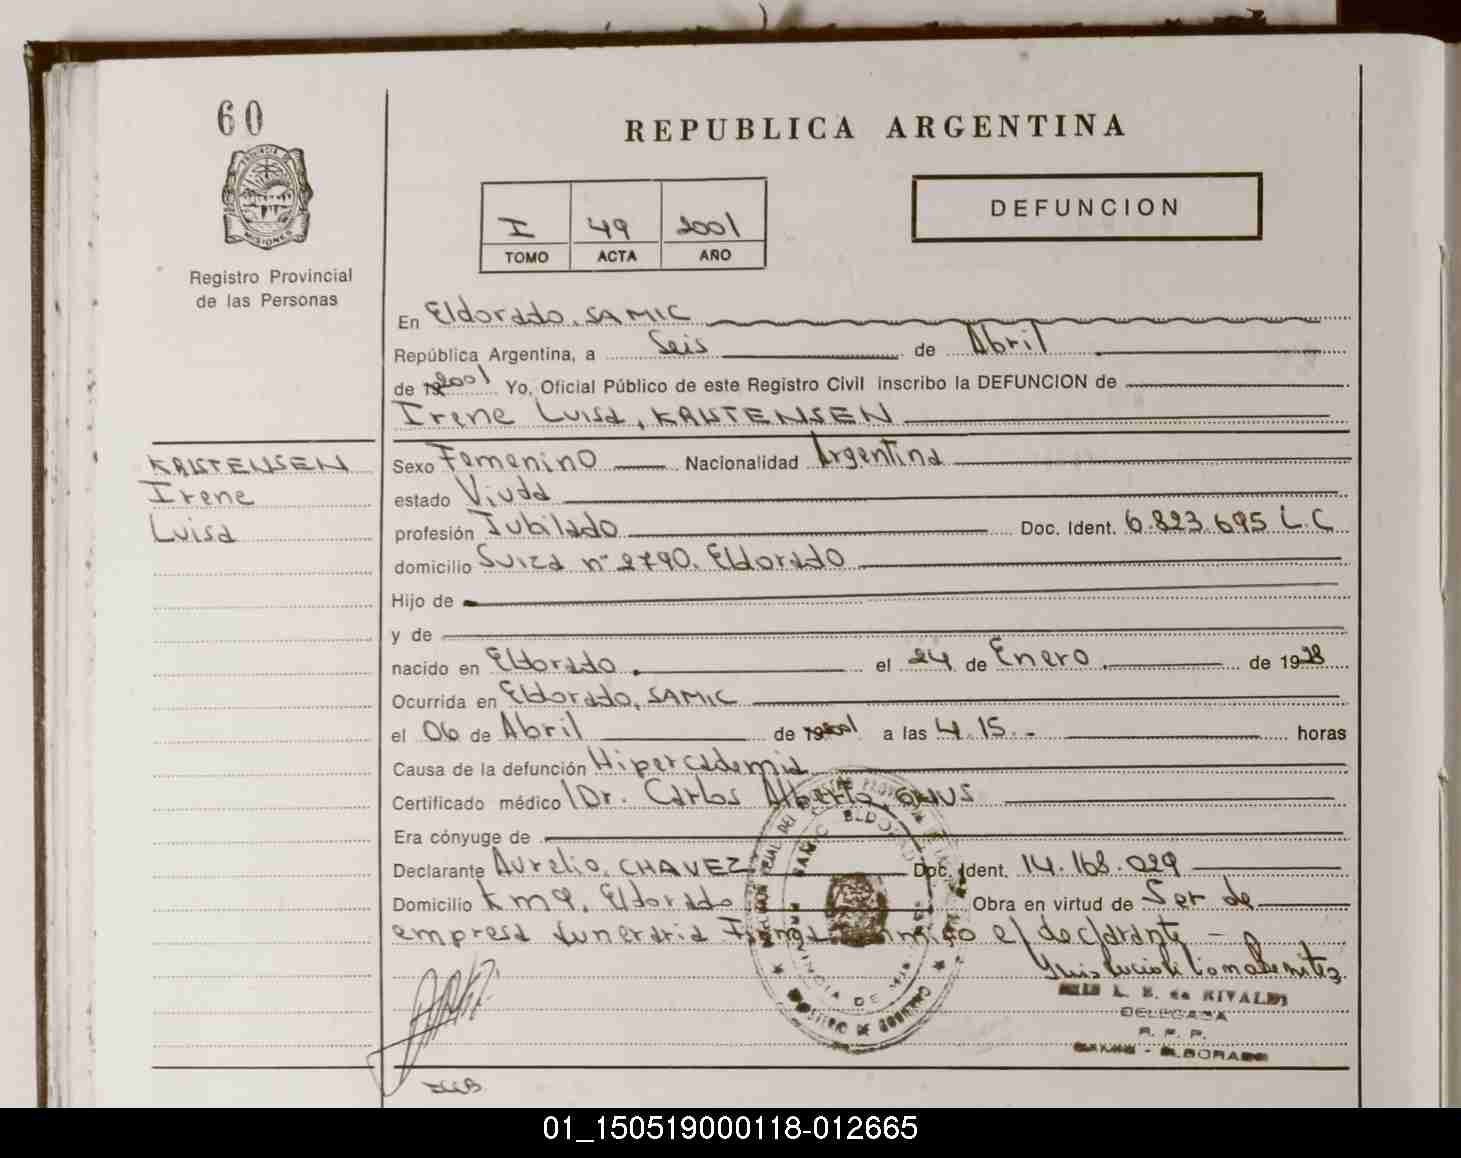 60
PROVINCIA DE
MISIONES
Registro Provincial
de las Personas
REPUBLICA ARGENTINA
I 49 2001
TOMO ACTA AÑO
DEFUNCION
En Eldorado, SAMIC
República Argentina, a Seis de Abril
de 2001 Yo, Oficial Público de este Registro Civil inscribo la DEFUNCION de
Irene Luisa, KRISTENSEN
KRISTENSEN
Irene
Luisa
Sexo Femenino Nacionalidad Argentina
estado Viuda
profesión Jubilado Doc. Ident. 6.823.695 L.C
domicilio Suiza nº 2790. Eldorado
Hijo de
y de
nacido en Eldorado el 24 de Enero de 1928
Ocurrida en Eldorado, SAMIC
el 06 de Abril de 2001 a las 4.15.- horas
Causa de la defunción Hipercademia
Certificado médico Dr. Carlos Alberto
Era cónyuge de
Declarante Aurelio, CHAVEZ Doc. Ident. 14.168.029
Domicilio km 9, Eldorado Obra en virtud de Ser de
empresa funeraria Firma conmigo el declarante -
SAMIC ELDORADO
PROVINCIA DE MISIONES
MINISTERIO DE GOBIERNO
L. B. de RIVALDI
DELEGADA
R. P. P.
SAMIC - ELDORADO
01_150519000118-012665